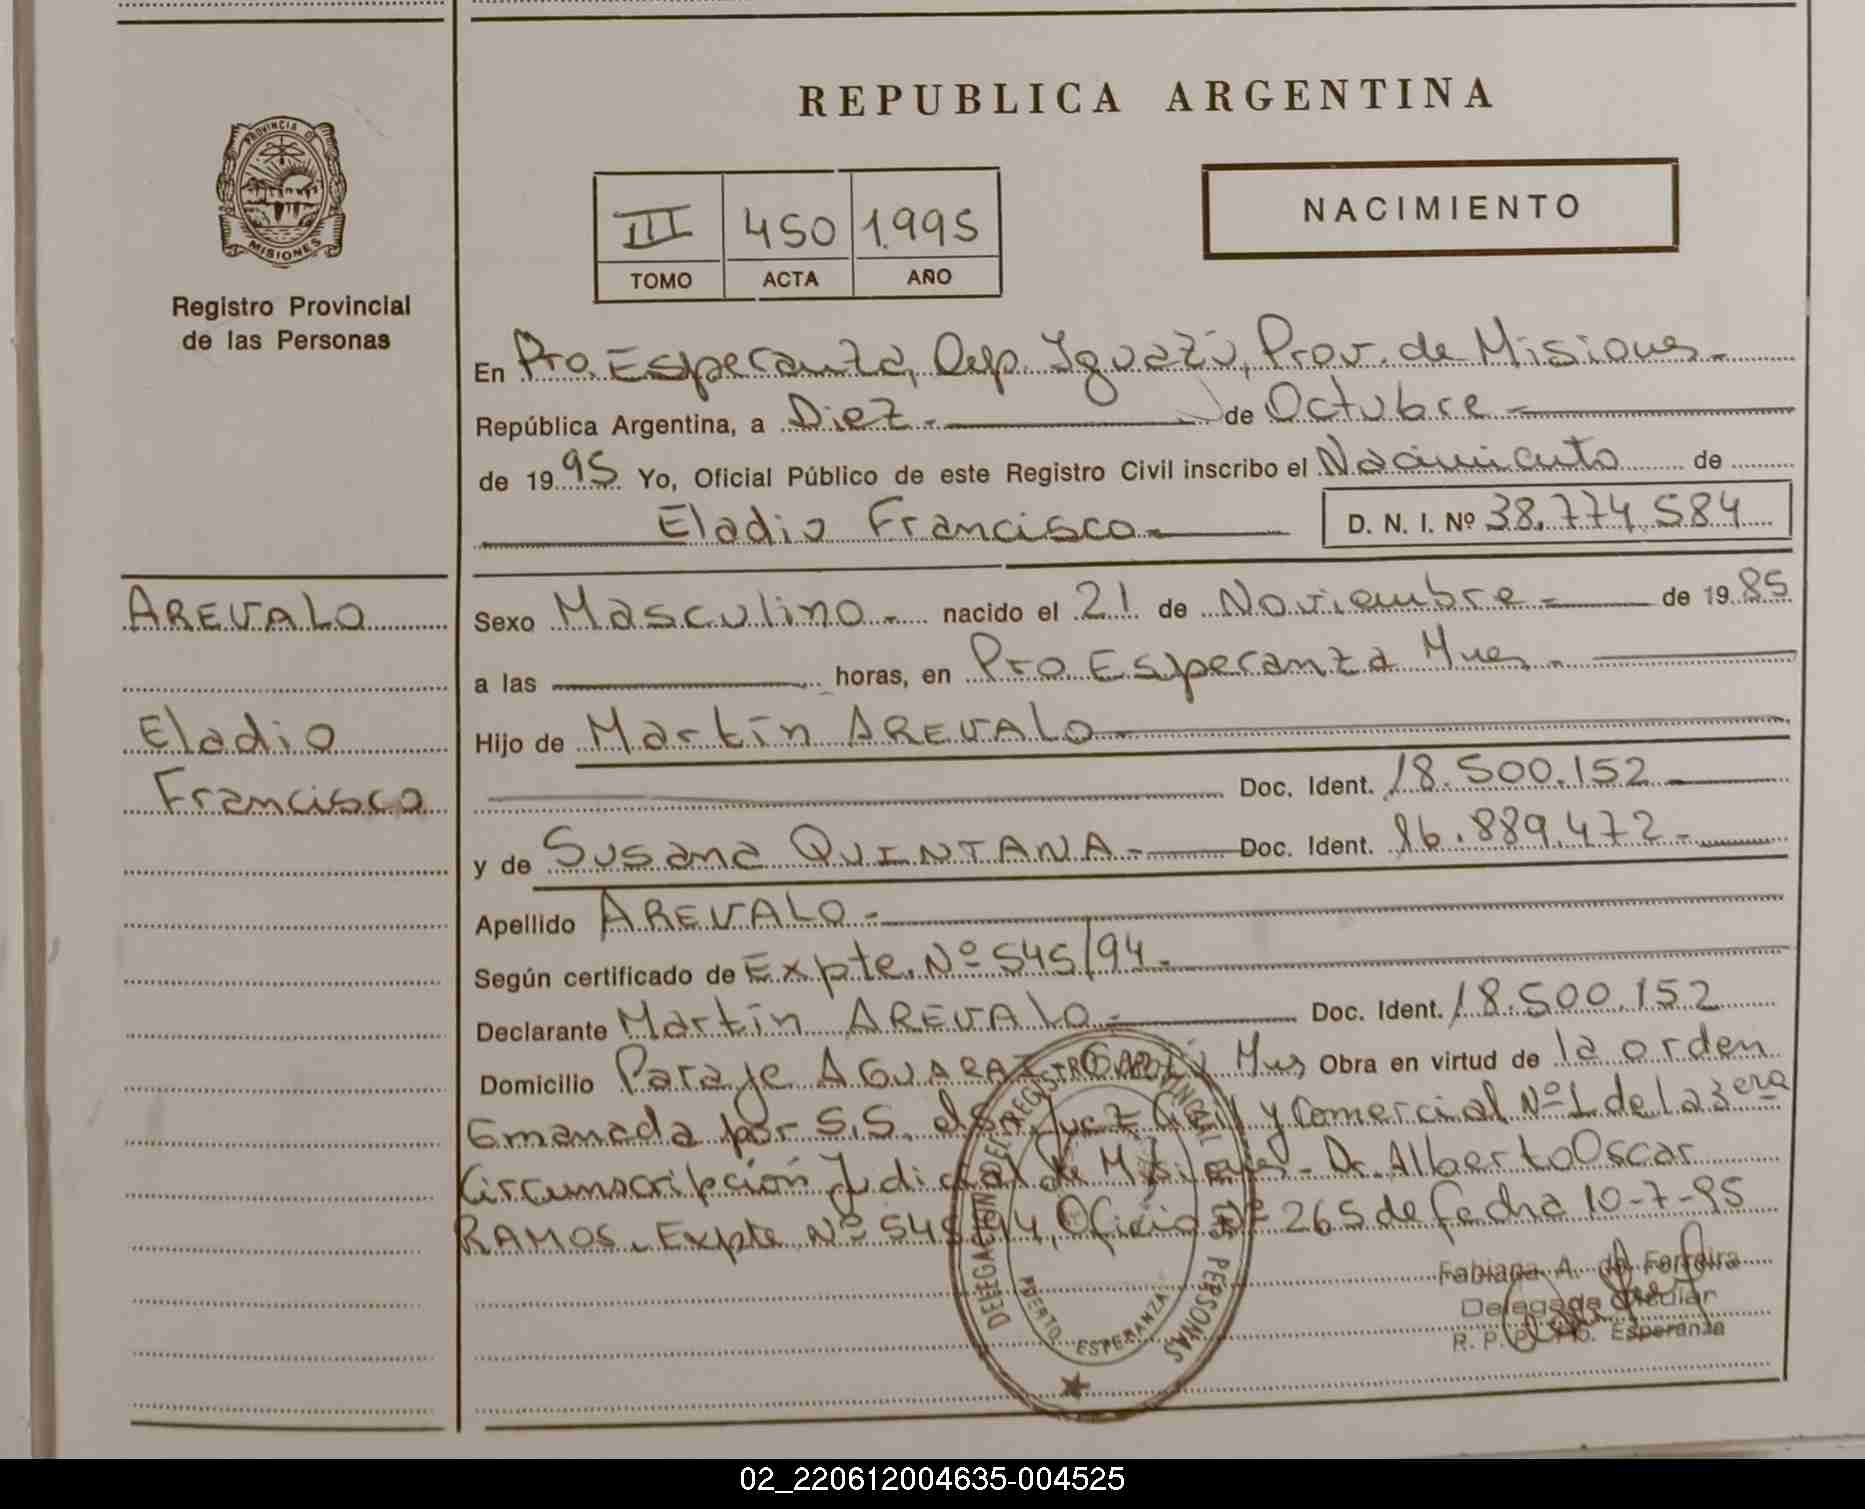 REPUBLICA ARGENTINA
PROVINCIA DE
MISIONES
Registro Provincial
de las Personas
NACIMIENTO
III 450 1.995
TOMO ACTA AÑO
En Pto. Esperanza, Dep. Iguazú, Prov. de Misiones.
República Argentina, a Diez. de Octubre
de 1995 Yo, Oficial Público de este Registro Civil inscribo el Nacimiento de
Eladio Francisco D. N. I. Nº 38.774.584
AREVALO
Eladio
Francisco
Sexo Masculino. nacido el 21 de Noviembre de 1985
a las horas, en Pto Esperanza Mnes.
Hijo de Martín AREVALO
Doc. Ident. 18.500.152
y de Susana QUINTANA Doc. Ident. 16.889.472
Apellido AREVALO
Según certificado de Expte. Nº 545/94.
Declarante Martín AREVALO Doc. Ident. 18.500.152
Domicilio Paraje AGUARAI Mnes Obra en virtud de la orden
Emanada por S.S. el Sr. Juez Civil y Comercial Nº 1 de la 3era
Circunscripción Judicial de Misiones. Dr. Alberto Oscar
RAMOS. Expte Nº 545/94, Oficio Nº 265 de fecha 10-7-95
DELEGACION DEL REGISTRO PROVINCIAL DE LAS PERSONAS
PUERTO ESPERANZA
Fabiana A. de Ferreira
Delegada Titular
R. P. P. Pto. Esperanza
02_220612004635-004525